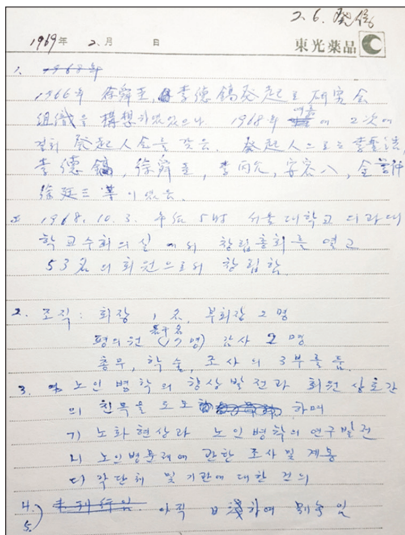 2.6. 発信
1969年 2.月 日 東光薬品
1.
1966年 徐舜圭, 李德鎬 發起로 研究会
組織을 構想하였었으나 1968年 에 2次에
걸쳐 発起人会를 갖음. 発起人으로는
李德鎬, 徐舜圭, 李
徐廷三 等이 있음.
1968. 10. 3. 午后 5时 서울大学校 의과대
학 교수회의실에서 창립총회를 열고
53名의 회원으로서 창립함.
2. 조직: 회장 1名, 부회장 2명
若干名
평의원 (17명) 감사 2명
총무, 학술, 조사의 3부를 둠.
3. 노인병학의 향상발전과 회원상호간
의 친목을 도모 하며
ㄱ) 노화현상과 노인병학의 연구발전
ㄴ) 노인병문제에 관한 조사 및 계몽
ㄷ) 각단체 및 기관에 대한 건의
4.) 아직 日淺하여
5.